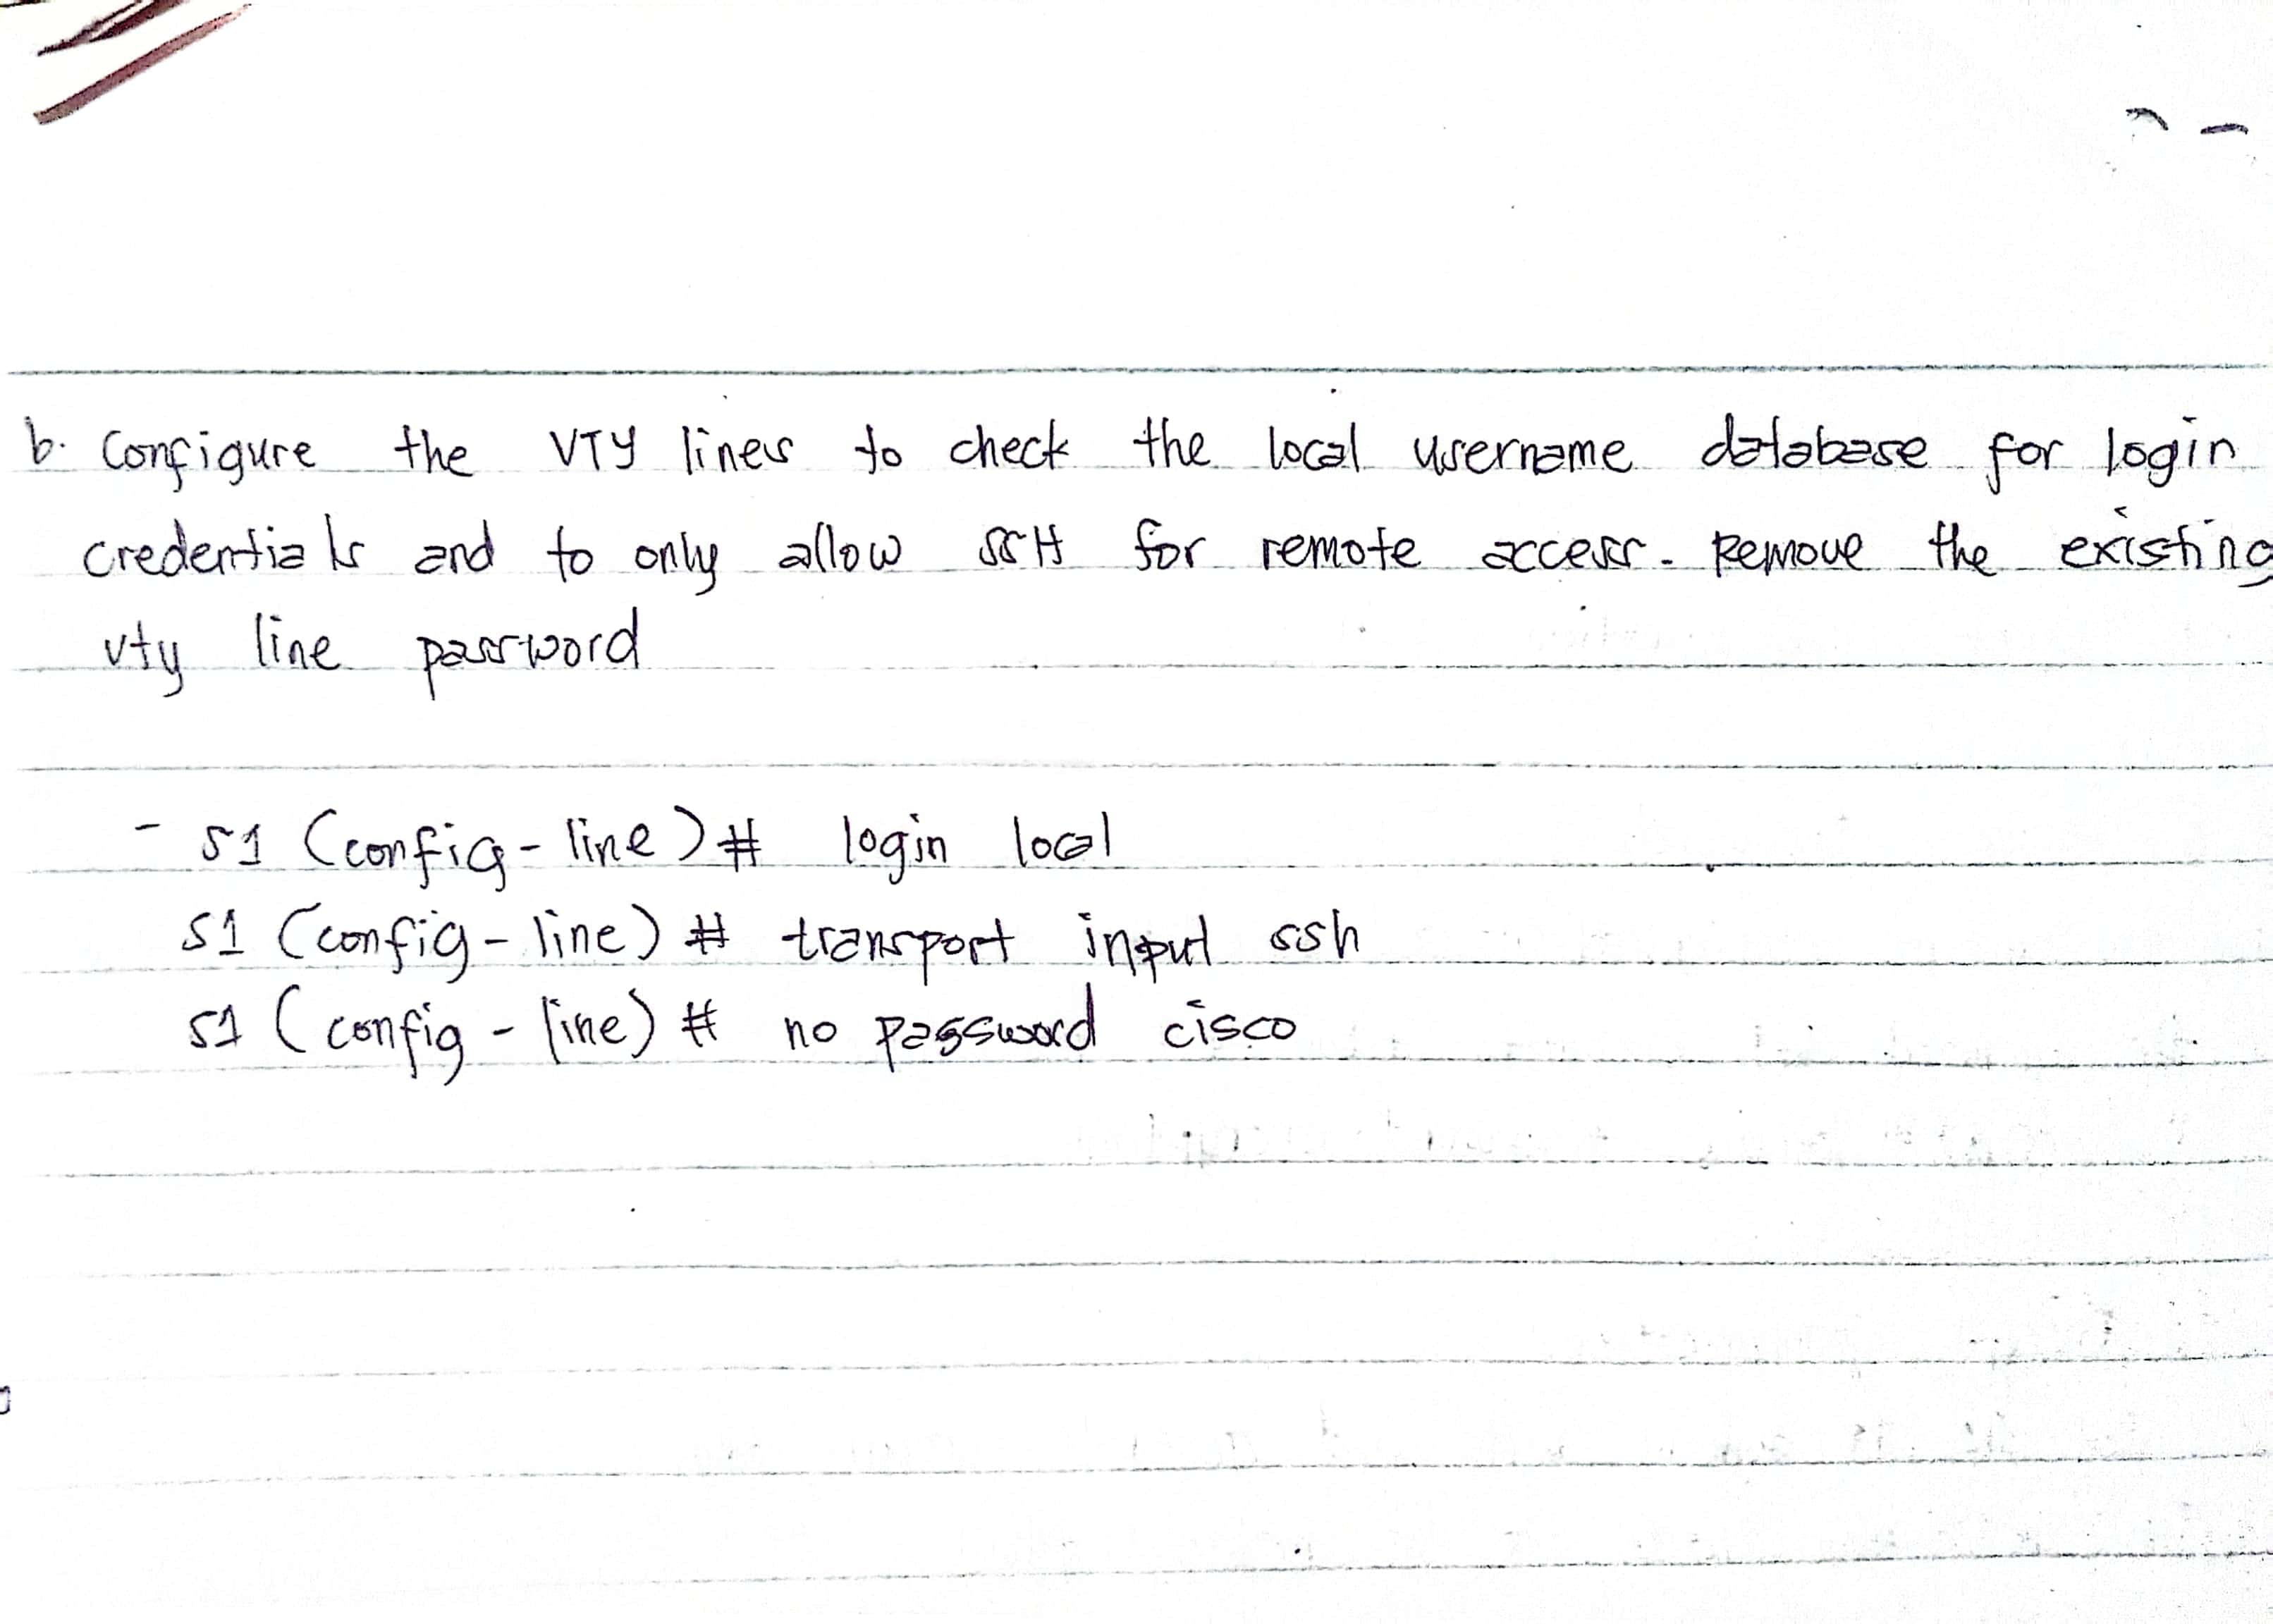 b. Configure the VTY lines to check the local username database for login
credentials and to only allow SSH for remote access. Remove the existing
vty line password
- S1 (config-line)# login local
S1 (config-line) # transport input ssh
S1 (config-line) # no password cisco